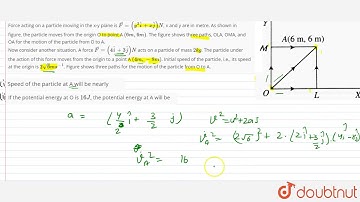 Force acting on a particle moving in the x-y plane is F = (y²i + xj)N, x and y are in metre. As shown in
figure, the particle moves from the origin O to point A (6m, 6m). The figure shows three paths, OLA, OMA, and
OA for the motion of the particle from O to A.
Now consider another situation. A force F = (4i + 3j)N acts on a particle of mass 2kg. The particle under
the action of this force moves from the origin to a point A (4m, − 8m). Initial speed of the particle, i.e., its speed
at the origin is 2√6ms⁻¹. Figure shows three paths for the motion of the particle from O to A.
Speed of the particle at A will be nearly
If the potential energy at O is 16J, the potential energy at A will be
Y
M
A(6 m, 6 m)
O
L
X
a = (4/2 i + 3/2 j) v² = u² + 2as
v_A² = (2√6)² + 2·(2i + 3/2 j)(4i − 8j)
v_A² = 16
doubtnut